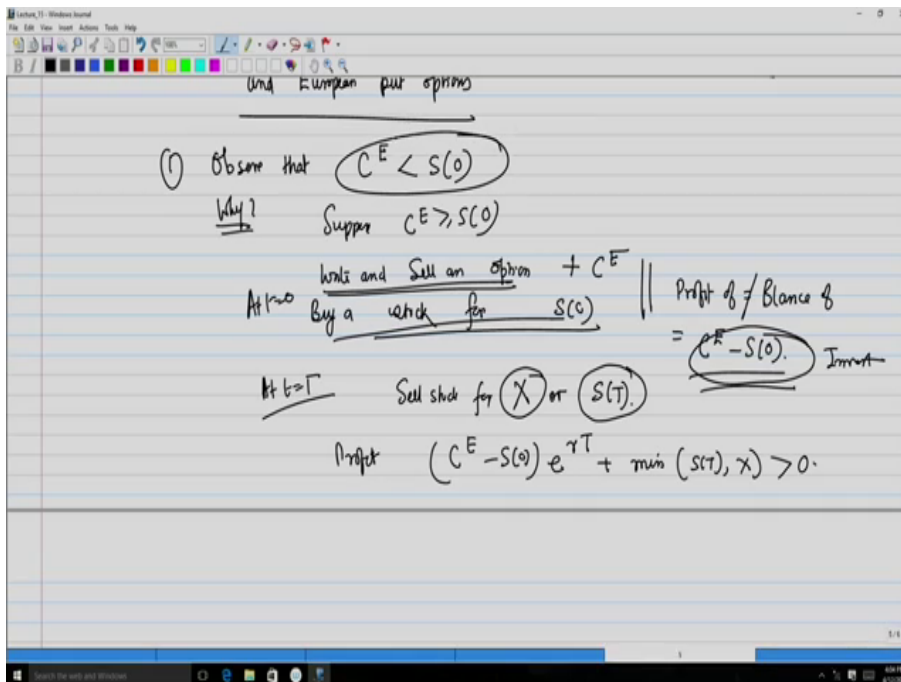 Lecture_11 - Windows Journal
File Edit View Insert Actions Tools Help
and European put options
① Observe that C^E < S(0)
Why? Suppose C^E ≥ S(0)
At t=0 Write and Sell an option + C^E
Buy a stock for S(0)
Profit of / Balance of
= C^E - S(0). Invest
At t=T Sell stock for X or S(T).
Profit (C^E - S(0)) e^{rT} + min (S(T), X) > 0.
5
Search the web and Windows